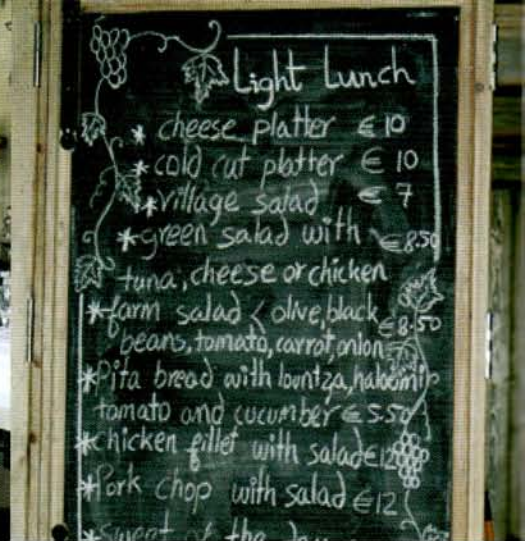 Light Lunch
* cheese platter € 10
* cold cut platter € 10
* village salad € 7
* green salad with € 8.50
tuna, cheese or chicken
* farm salad < olive, black € 8.50
beans, tomato, carrot, onion
* Pita bread with lountza, haloomi
tomato and cucumber € 5.50
* chicken fillet with salad € 12
* Pork chop with salad € 12
* Sweet of the day